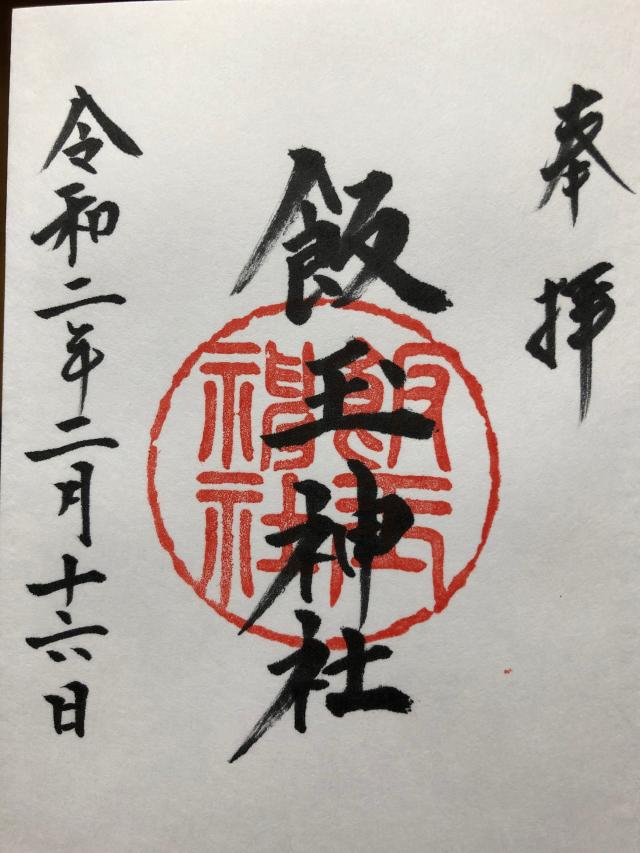 奉拝
飯玉神社
飯玉神社
令和二年二月十六日